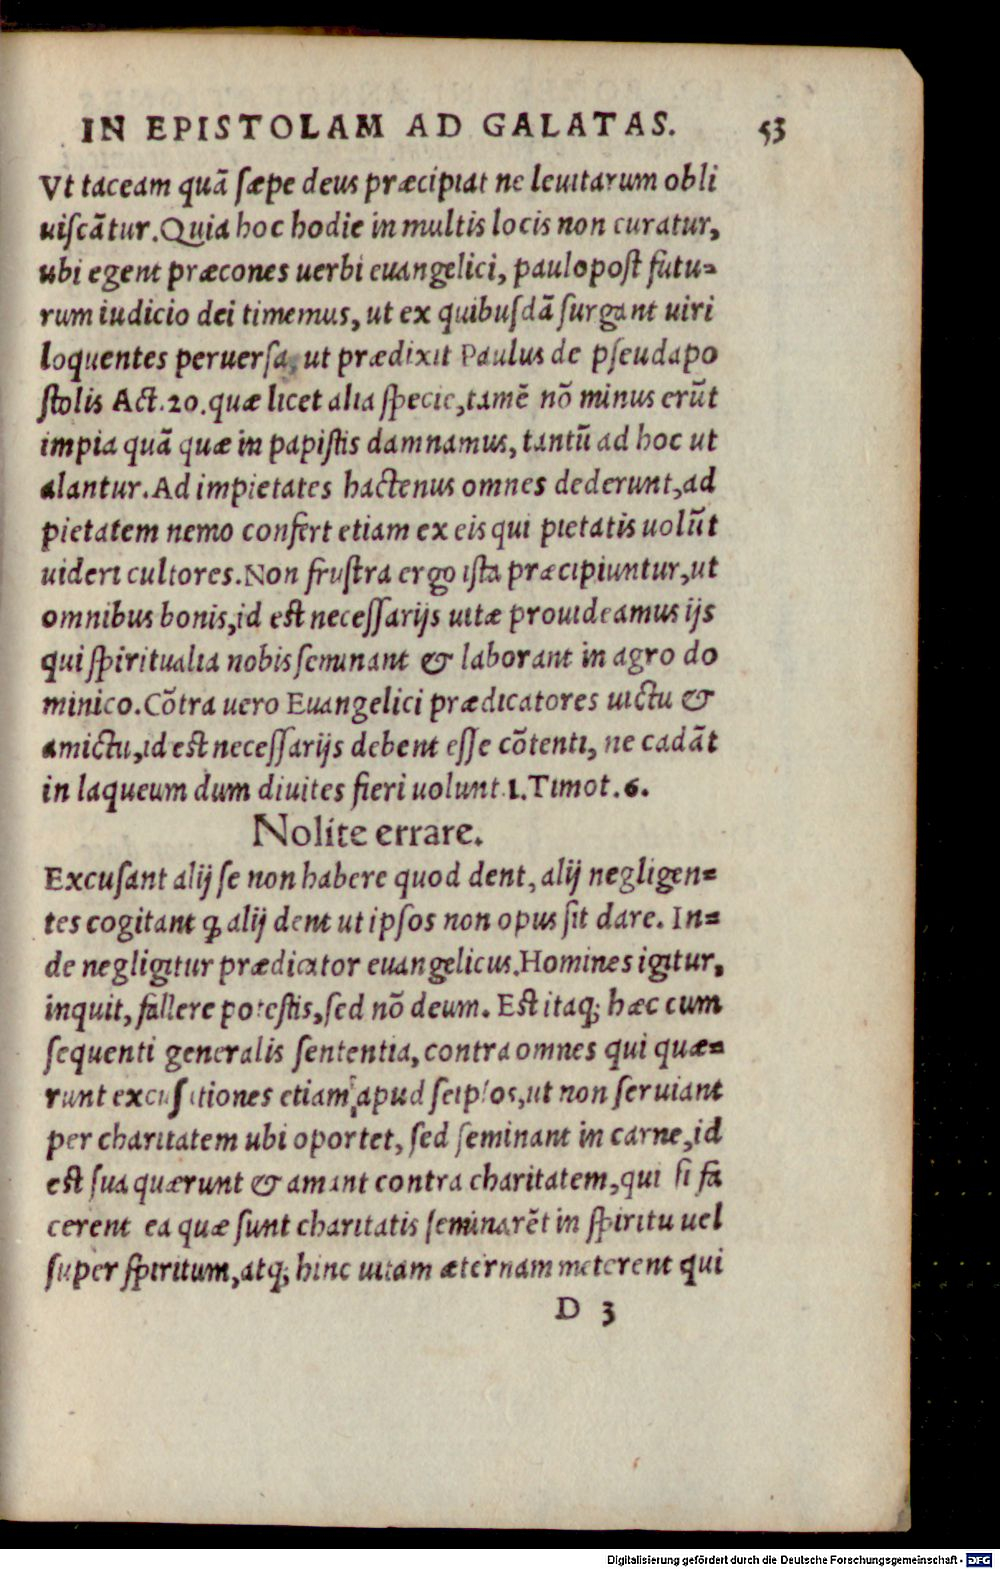 IN EPISTOLAM AD GALATAS. 53
Vt taceam quã sæpe deus præcipiat ne leuitarum obli
uiscãtur. Quia hoc hodie in multis locis non curatur,
ubi egent præcones uerbi euangelici, paulopost futu-
rum iudicio dei timemus, ut ex quibusdã surgant uiri
loquentes peruersa, ut prædixit Paulus de pseudapo
stolis Act. 20. quæ licet alia specie, tamẽ nõ minus erũt
impia quã quæ in papistis damnamus, tantũ ad hoc ut
alantur. Ad impietates hactenus omnes dederunt, ad
pietatem nemo confert etiam ex eis qui pietatis uolũt
uideri cultores. Non frustra ergo ista præcipiuntur, ut
omnibus bonis, id est necessarijs uitæ prouideamus ijs
qui spiritualia nobis seminant & laborant in agro do
minico. Cõtra uero Euangelici prædicatores uictu &
amictu, id est necessarijs debent esse cõtenti, ne cadãt
in laqueum dum diuites fieri uolunt 1. Timot. 6.
Nolite errare.
Excusant alij se non habere quod dent, alij negligen-
tes cogitant ꝙ alij dent ut ipsos non opus sit dare. In-
de negligitur prædicator euangelicus. Homines igitur,
inquit, fallere potestis, sed nõ deum. Est itaq; hæc cum
sequenti generalis sententia, contra omnes qui quæ-
runt excusationes etiam apud seipsos, ut non seruiant
per charitatem ubi oportet, sed seminant in carne, id
est sua quærunt & amant contra charitatem, qui si fa
cerent ea quæ sunt charitatis seminarẽt in spiritu uel
super spiritum, atq; hinc uitam æternam meterent qui
D 3
Digitalisierung gefördert durch die Deutsche Forschungsgemeinschaft - DFG